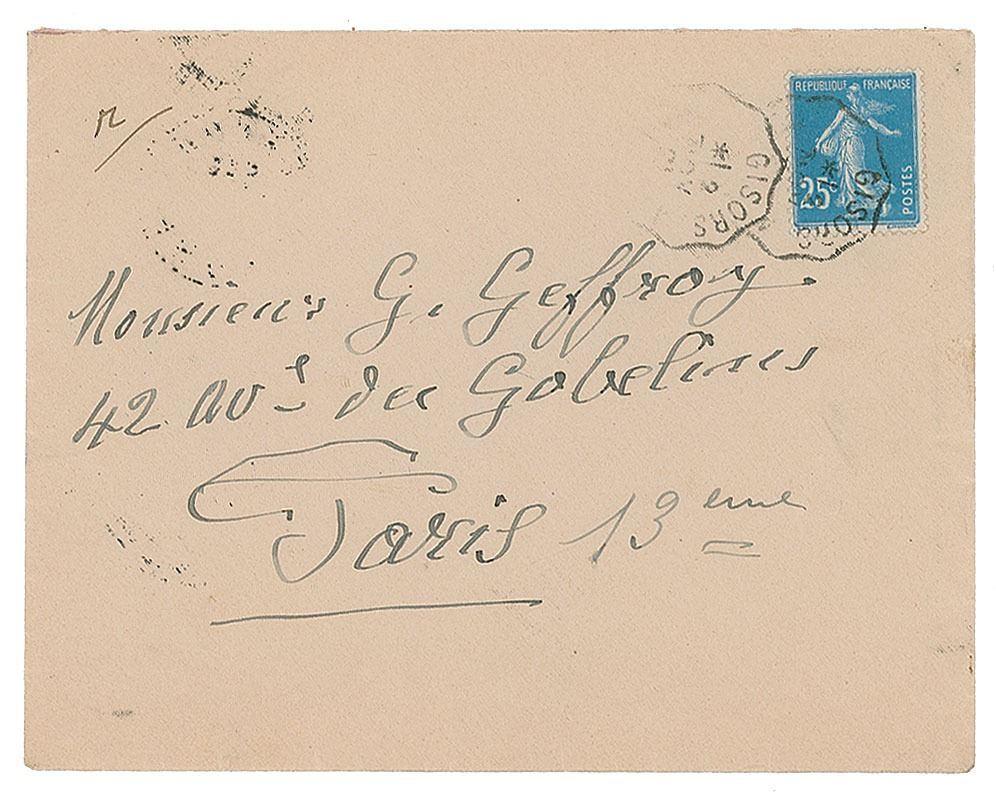 r/
RÉPUBLIQUE FRANÇAISE
25c
POSTES
GISORS
GISORS
Monsieur G. Geffroy.
42 av.e des Gobelins
Paris 13eme